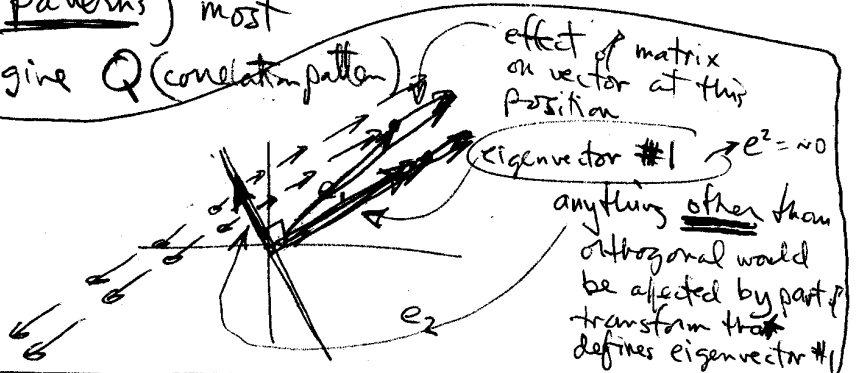 patterns) most
give Q (correlation pattern)
effect of matrix
on vector at this
position
eigenvector #1
e² = ~0
anything other than
orthogonal would
be affected by part of
transform that
defines eigenvector #1
e₁
e₂